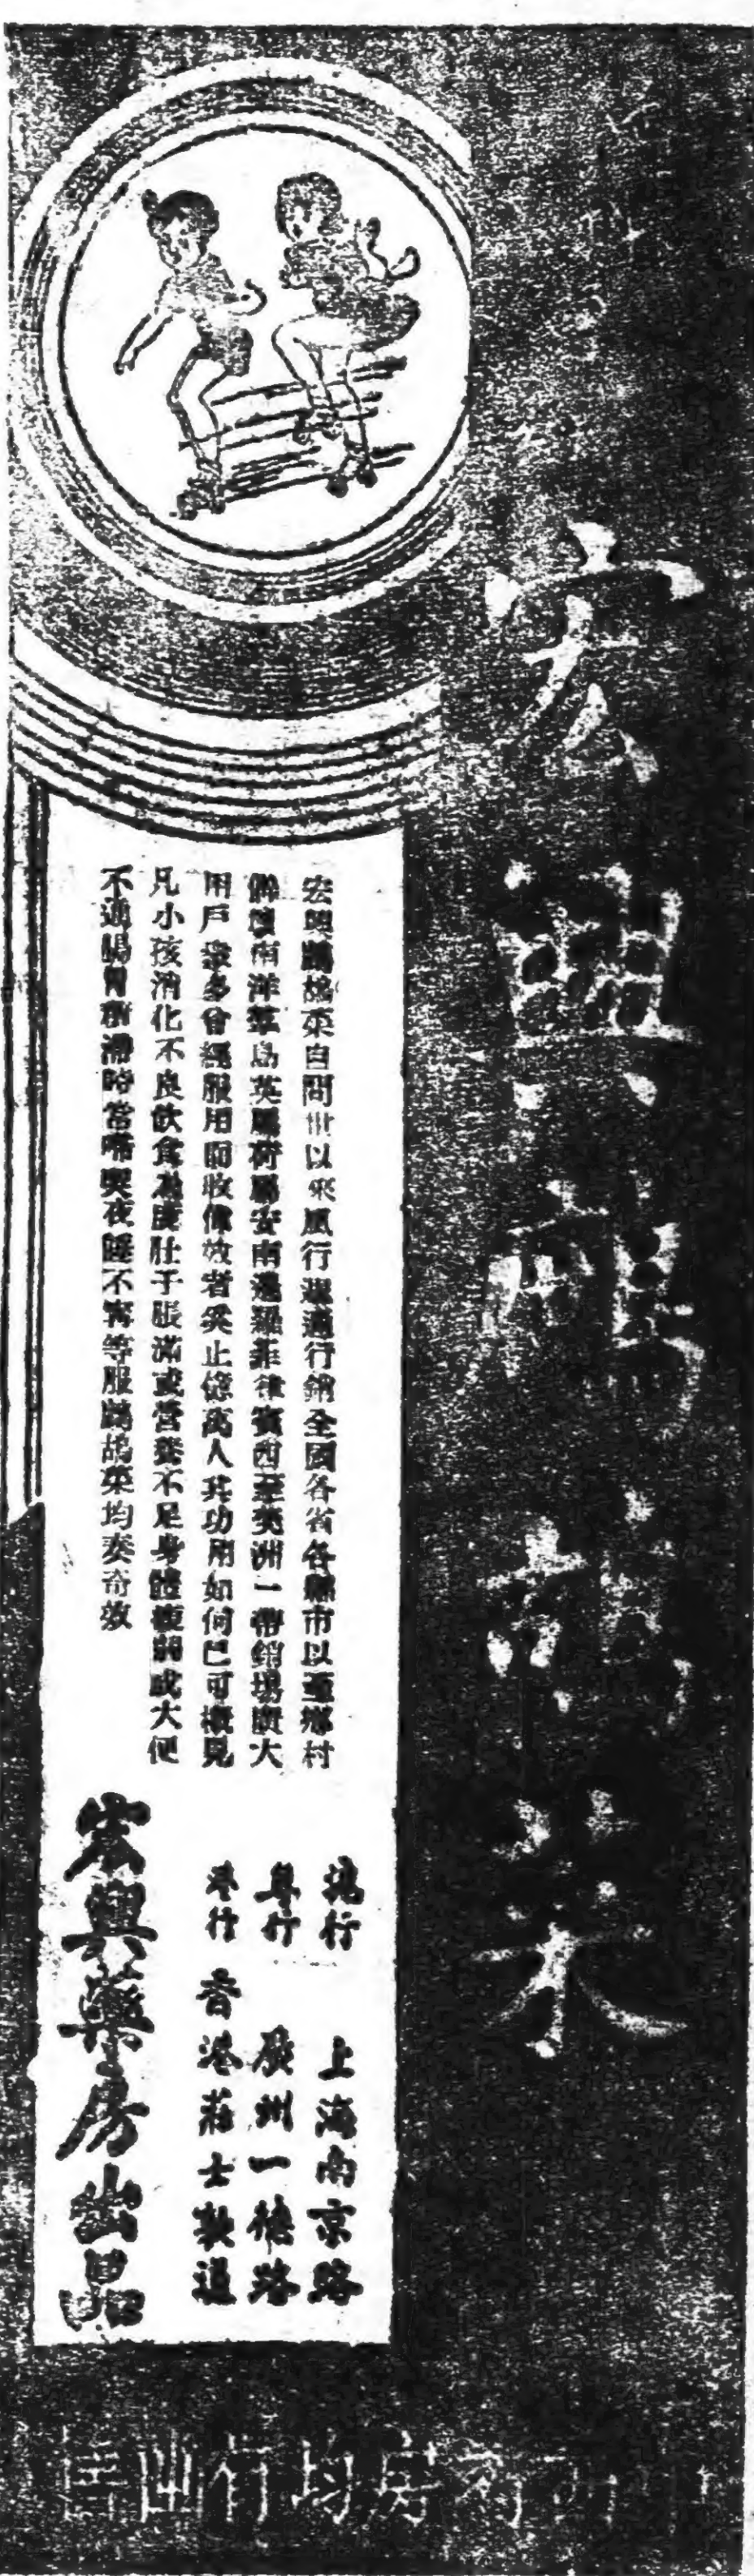 宏興鷓鴣菜
宏興鷓鴣菜自問世以來風行遐邇行銷全國各省各縣市以至鄉村
僻壤南洋羣島英屬荷屬安南暹羅菲律賓西至美洲一帶銷場廣大
用戶衆多曾經服用而收偉效者奚止億萬人其功用如何已可概見
凡小孩消化不良飲食過度肚子脹滿或營養不足身體瘦弱或大便
不通腸胃積滯時常啼哭夜睡不寗等服鷓鴣菜均奏奇效
滬行 上海南京路
粵行 廣州一德路
港行 香港莊士敦道
宏興藥房出品
房均有出售